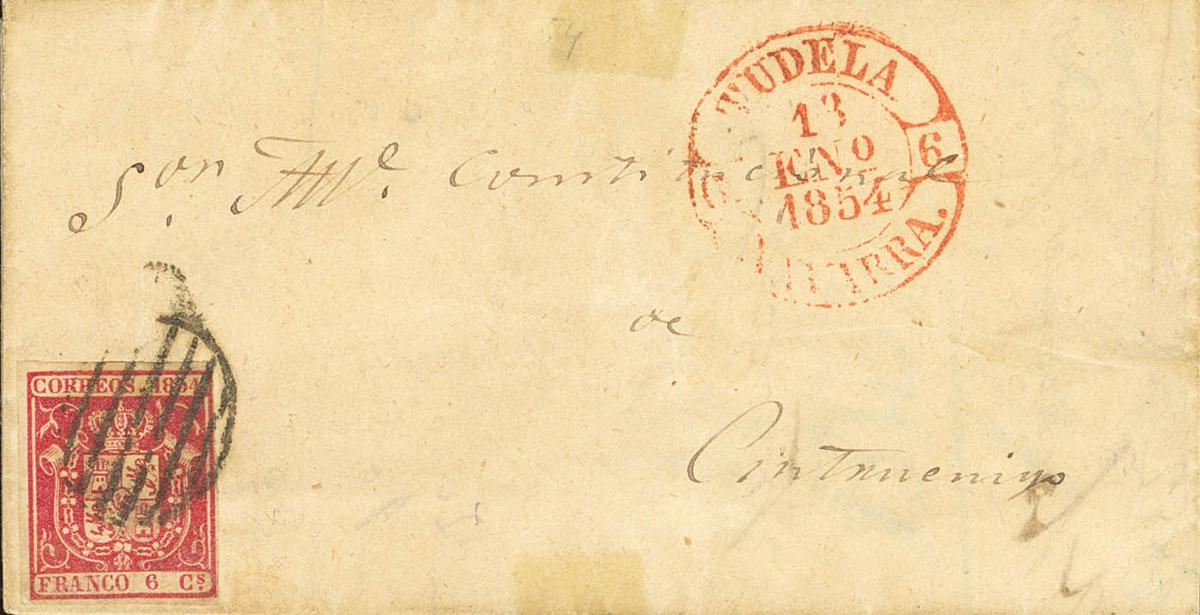 TUDELA
13
ENO
1854
6
6
Sor. Alle. Constitucional
de
Cintruenigo
CORREOS 1854
FRANCO 6 Cs